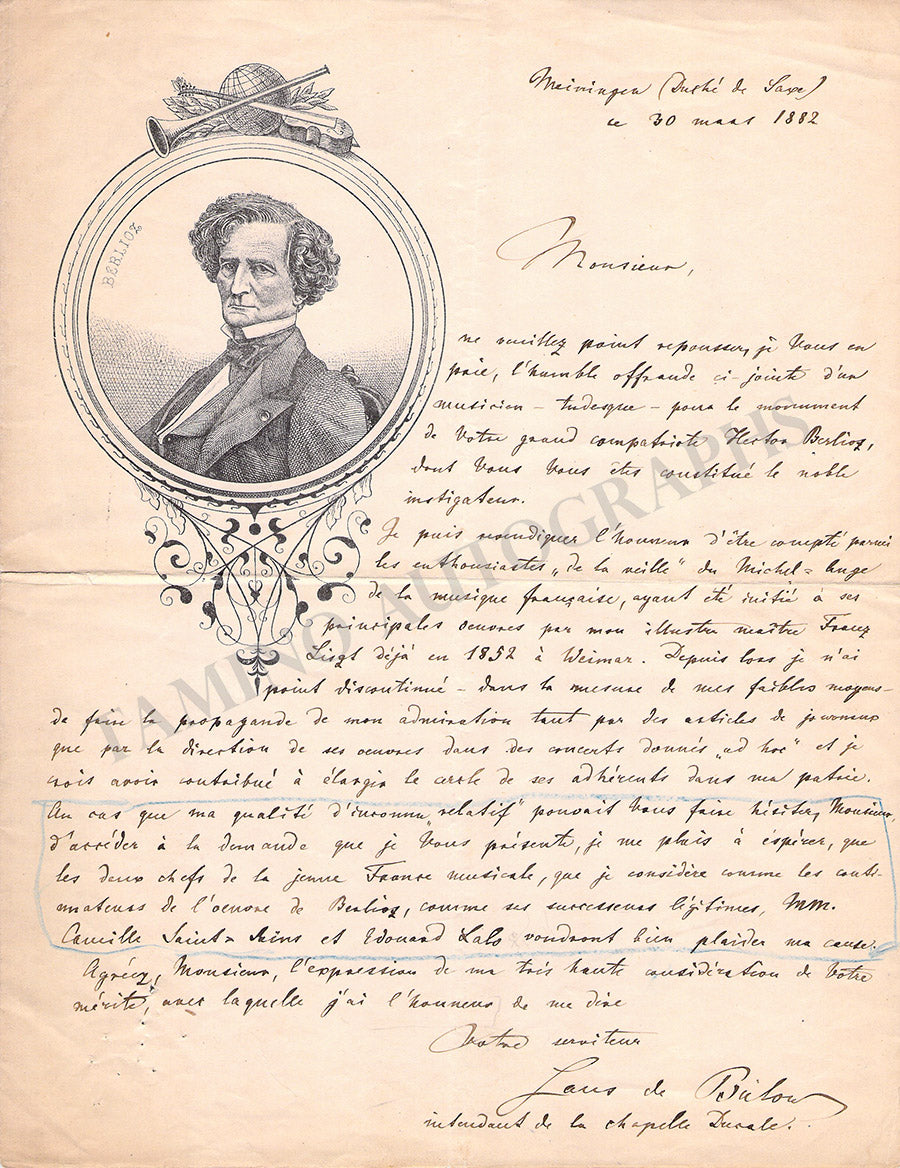 Meiningen (Duché de Saxe)
ce 30 mars 1882
BERLIOZ
Monsieur,
ne veuillez point repousser, je Vous en
prie, l'humble offrande ci-jointe d'un
musicien - tudesque - pour le monument
de Votre grand compatriote Hector Berlioz,
dont Vous Vous êtes constitué le noble
instigateur.
Je puis revendiquer l'honneur d'être compté parmi
les enthousiastes „de la veille" du Michel=Ange
de la musique française, ayant été initié à ses
principales oeuvres par mon illustre maître Franz
Liszt déjà en 1852 à Weimar. Depuis lors je n'ai
point discontinué - dans la mesure de mes faibles moyens -
de faire la propagande de mon admiration tant par des articles de journaux
que par la direction de ses oeuvres dans des concerts donnés „ad hoc" et je
crois avoir contribué à élargir le cercle de ses adhérents dans ma patrie.
Au cas que ma qualité d'inconnu „relatif" pouvait Vous faire hésiter, Monsieur,
d'accéder à la demande que je Vous présente, je me plais à espérer, que
les deux chefs de la jeune France musicale, que je considère comme les conti-
nuateurs de l'oeuvre de Berlioz, comme ses successeurs légitimes, MM.
Camille Saint=Saëns et Edouard Lalo voudront bien plaider ma cause.
Agréez, Monsieur, l'expression de ma très haute considération de Votre
mérite, avec laquelle j'ai l'honneur de me dire
Votre serviteur
Hans de Bülow
intendant de la chapelle Ducale.
TAMINO AUTOGRAPHS